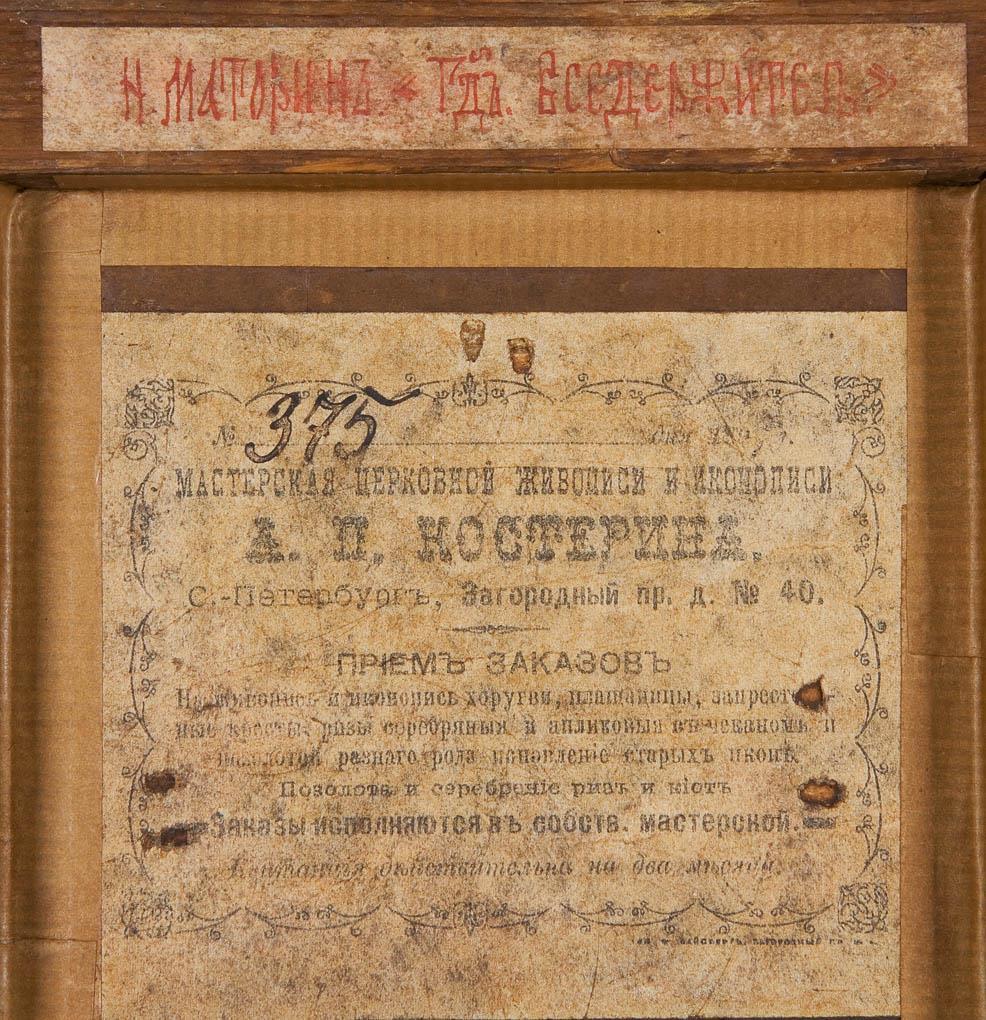 Н. МАТОРИНЪ. « ГДЬ. ВСЕДЕРЖИТЕЛЬ. »
№ 375 дня 189 г.
МАСТЕРСКАЯ ЦЕРКОВНОЙ ЖИВОПИСИ И ИКОНОПИСИ
А. П. КОСТЕРИНА.
С.-Петербургъ, Загородный пр. д. № 40.
ПРІЕМЪ ЗАКАЗОВЪ
На живопись и иконопись хоругви, плащаницы, запрест
ные кресты ризы серебряныя и апликовыя съ чеканомъ и
позолотой разнаго рода исправленіе старыхъ иконъ
Позолота и серебреніе ризъ и кіотъ
Заказы исполняются въ собств. мастерской.
Квитанція дѣйствительна на два мѣсяца.